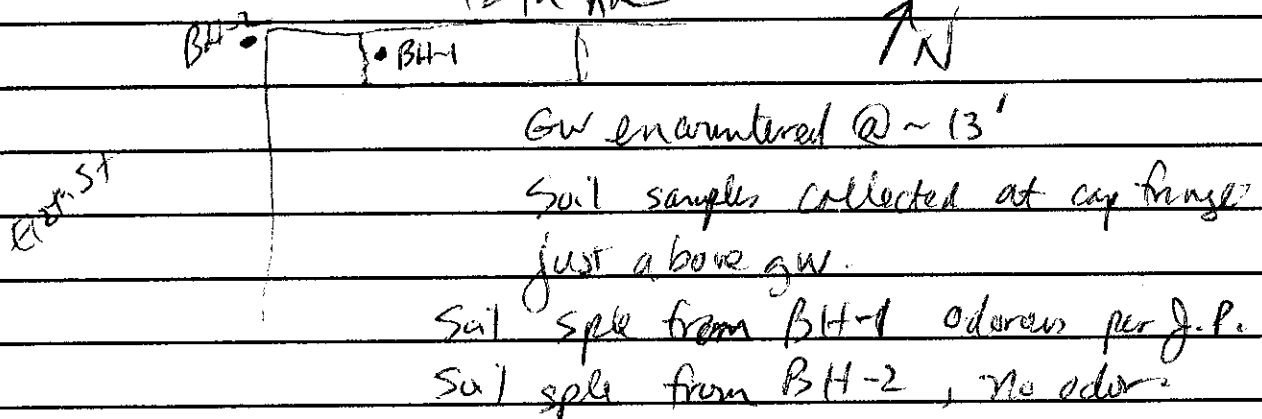 BH-2
BH-1
N
GW encountered @ ~ 13'
Soil samples collected at cap fringe
just above gw.
St
Soil sple from BH-1 odorous per J.P.
Soil sple from BH-2, no odor.